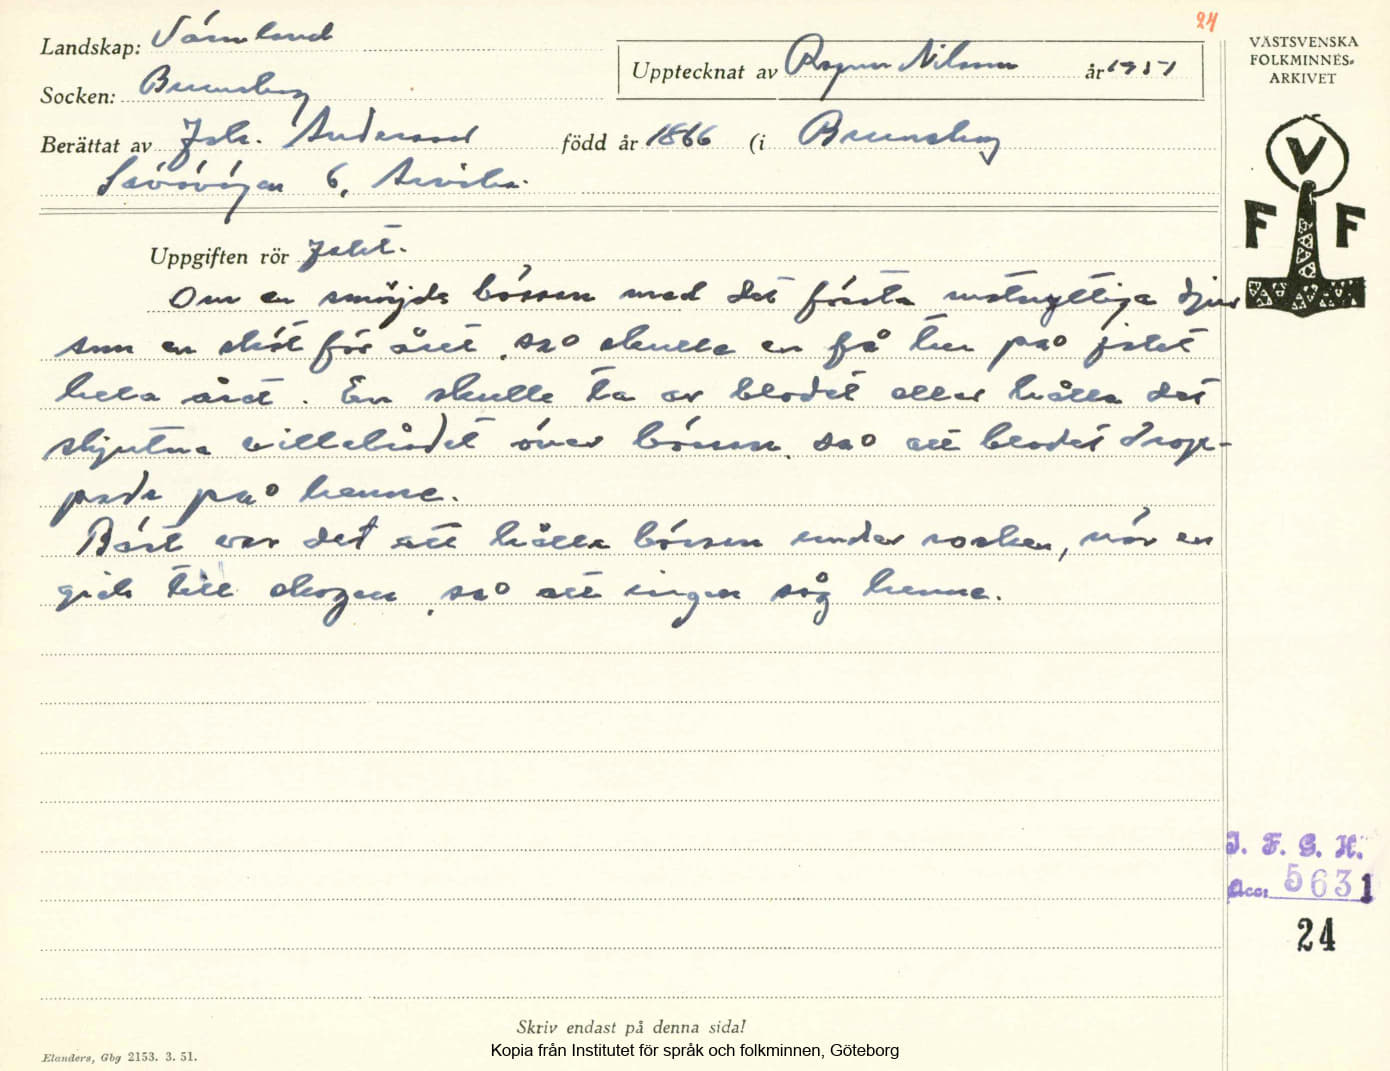 24
Landskap: Värmland
Socken: Brunskog
Upptecknat av Ragnar Nilsson år 1951
Berättat av Joh. Andersson född år 1866 (i Brunskog
6, Arvika.
Uppgiften rör Jakt.
Om en smörjde bössan med det första matnyttiga djur
som en sköt för året, så skulle en få tur på jakt
hela året. En skulle ta av blodet eller hålla det
skjutna villebrådet över bössan, så att blodet drop-
pade på henne.
Bäst var det att hålla bössan under rocken, när en
gick till skogen, så att ingen såg henne.
VÄSTSVENSKA
FOLKMINNES-
ARKIVET
V
F F
I. F. G. H.
Acc: 5631
24
Skriv endast på denna sida!
Elanders, Gbg 2153. 3. 51.
Kopia från Institutet för språk och folkminnen, Göteborg